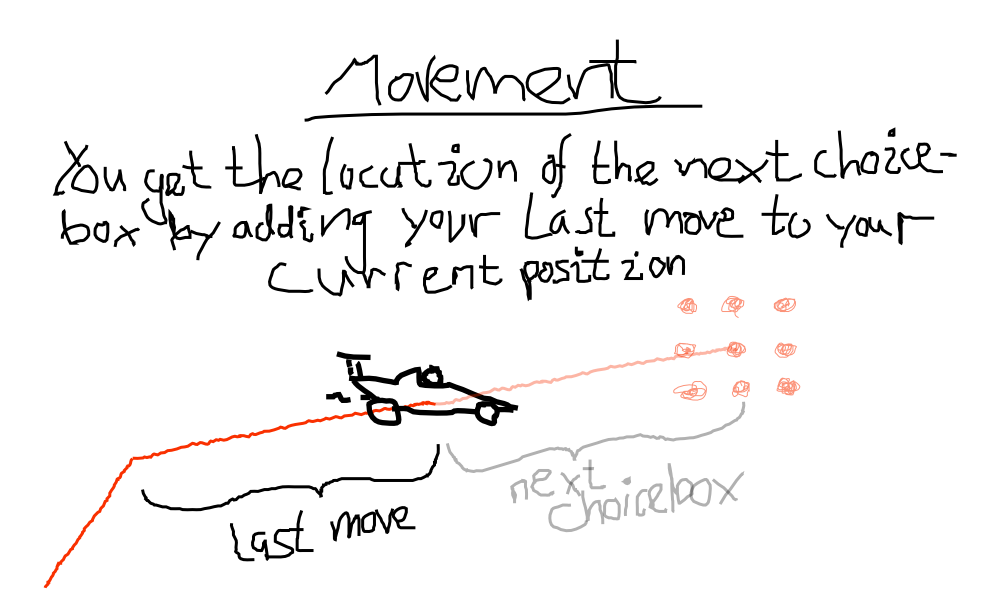 Movement
You get the location of the next choice-
box by adding your Last move to your
current position
Last move
next
choicebox